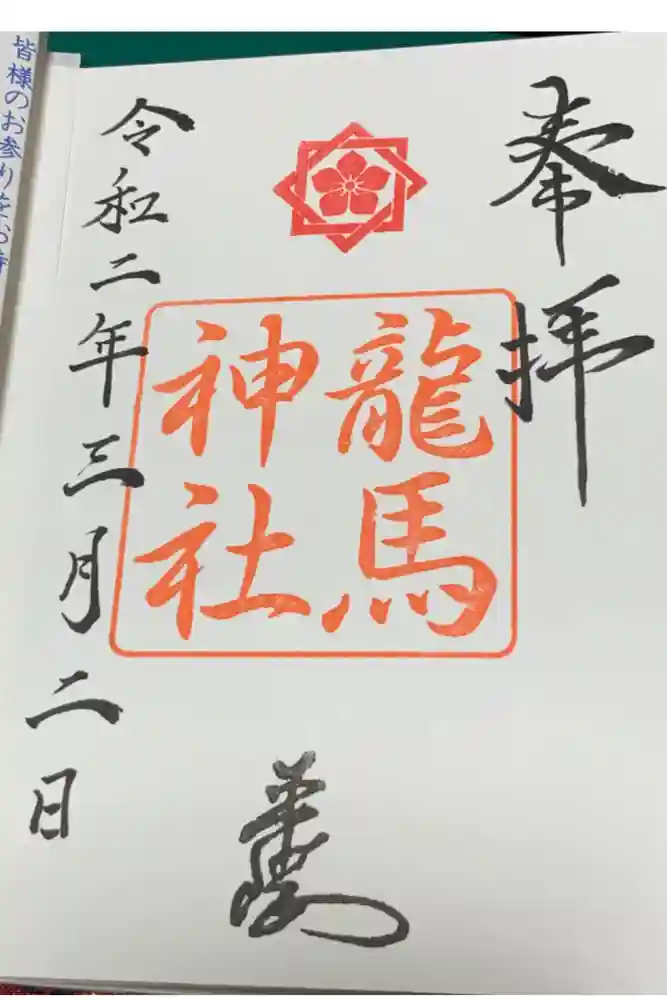 奉拝
龍馬
神社
令和二年三月二日
皆様のお参りをお待